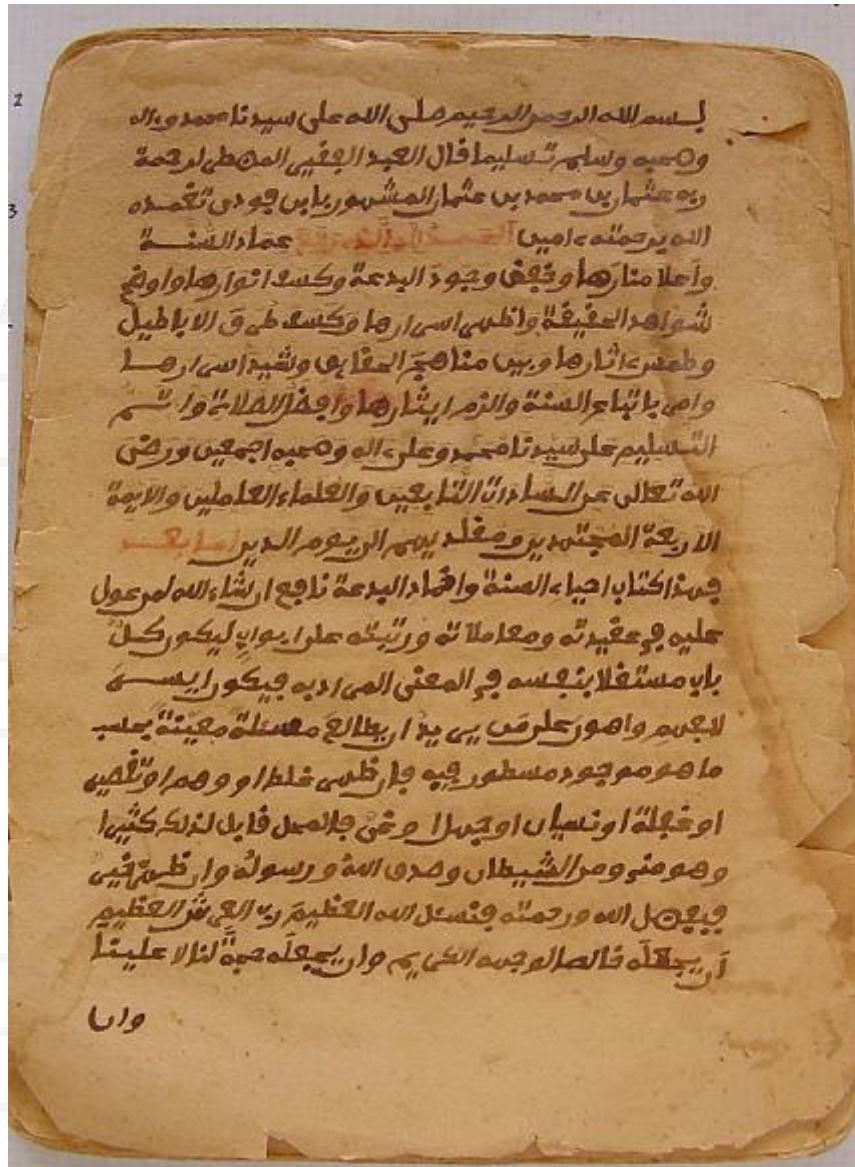 2
3
بسم الله الرحمن الرحيم صلى الله على سيدنا محمد وءاله
وصحبه وسلم تسليما قال العبد الفقير المضطر لرحمة
ربه عثمان بن محمد بن عثمان المشهور بابن فودي تغمده
الله برحمته ءامين عماد السنة
واعلا منارها وخفض وجود البدعة وكسف انوارها واوضح
شواهد الحقيقة واظهر اسرارها وكسف طرق الاباطيل
وطمس ءاثارها وبين مناهج الحقايق وشيد اسرارها
وامر باتباع السنة والزم ايثارها وافضل الصلاة واتم
التسليم على سيدنا محمد وعلى ءاله وصحبه اجمعين ورضى
الله تعالى عن السادات التابعين والعلماء العاملين والايمة
الاربعة المجتهدين ومقلديهم الى يوم الدين اما بعد
فهذا كتاب احياء السنة واخماد البدعة نافع ان شاء الله لمن عول
عليه في عقيدته ومعاملاته ورتبته على ابواب ليكون كل
باب مستقلا بنفسه في المعنى المراد به فيكون ايسر
لافهم واهون على من يريد ان يطالع مسئلة معينة بحسب
ما هو موجود مسطور فيه فان ظهر غلط او وهم او تقصير
او غفلة او نسيان او جهل او فالمحل قابل لذلك كثيرا
وهو مني ومن الشيطان وصدق الله ورسوله وان ظهر خير
فبفضل الله ورحمته فنسئل الله العظيم رب العرش العظيم
ان يجعله خالصا لوجهه الكريم وان يجعله حجة لنا لا علينا
وان